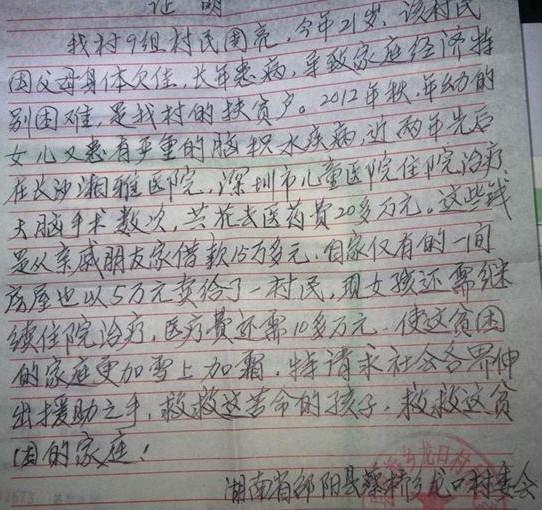 证明
我村9组村民周亮，今年21岁，该村民
因父母身体欠佳，长年患病，导致家庭经济特
别困难，是我村的扶贫户。2012年秋，年幼的
女儿又患有严重的脑积水疾病，近两年先后
在长沙湘雅医院，深圳市儿童医院住院治疗，
大脑手术数次，共花去医药费20多万元。这些钱
是从亲戚朋友家借款15万多元，自家仅有的一间
房屋也以5万元卖给了一村民，现女孩还需继
续住院治疗，医疗费还需10多万元。使这贫困
的家庭更加雪上加霜，特请求社会各界伸
出援助之手，救救这苦命的孩子，救救这贫
困的家庭！
湖南省邵阳县蔡桥乡龙口村委会